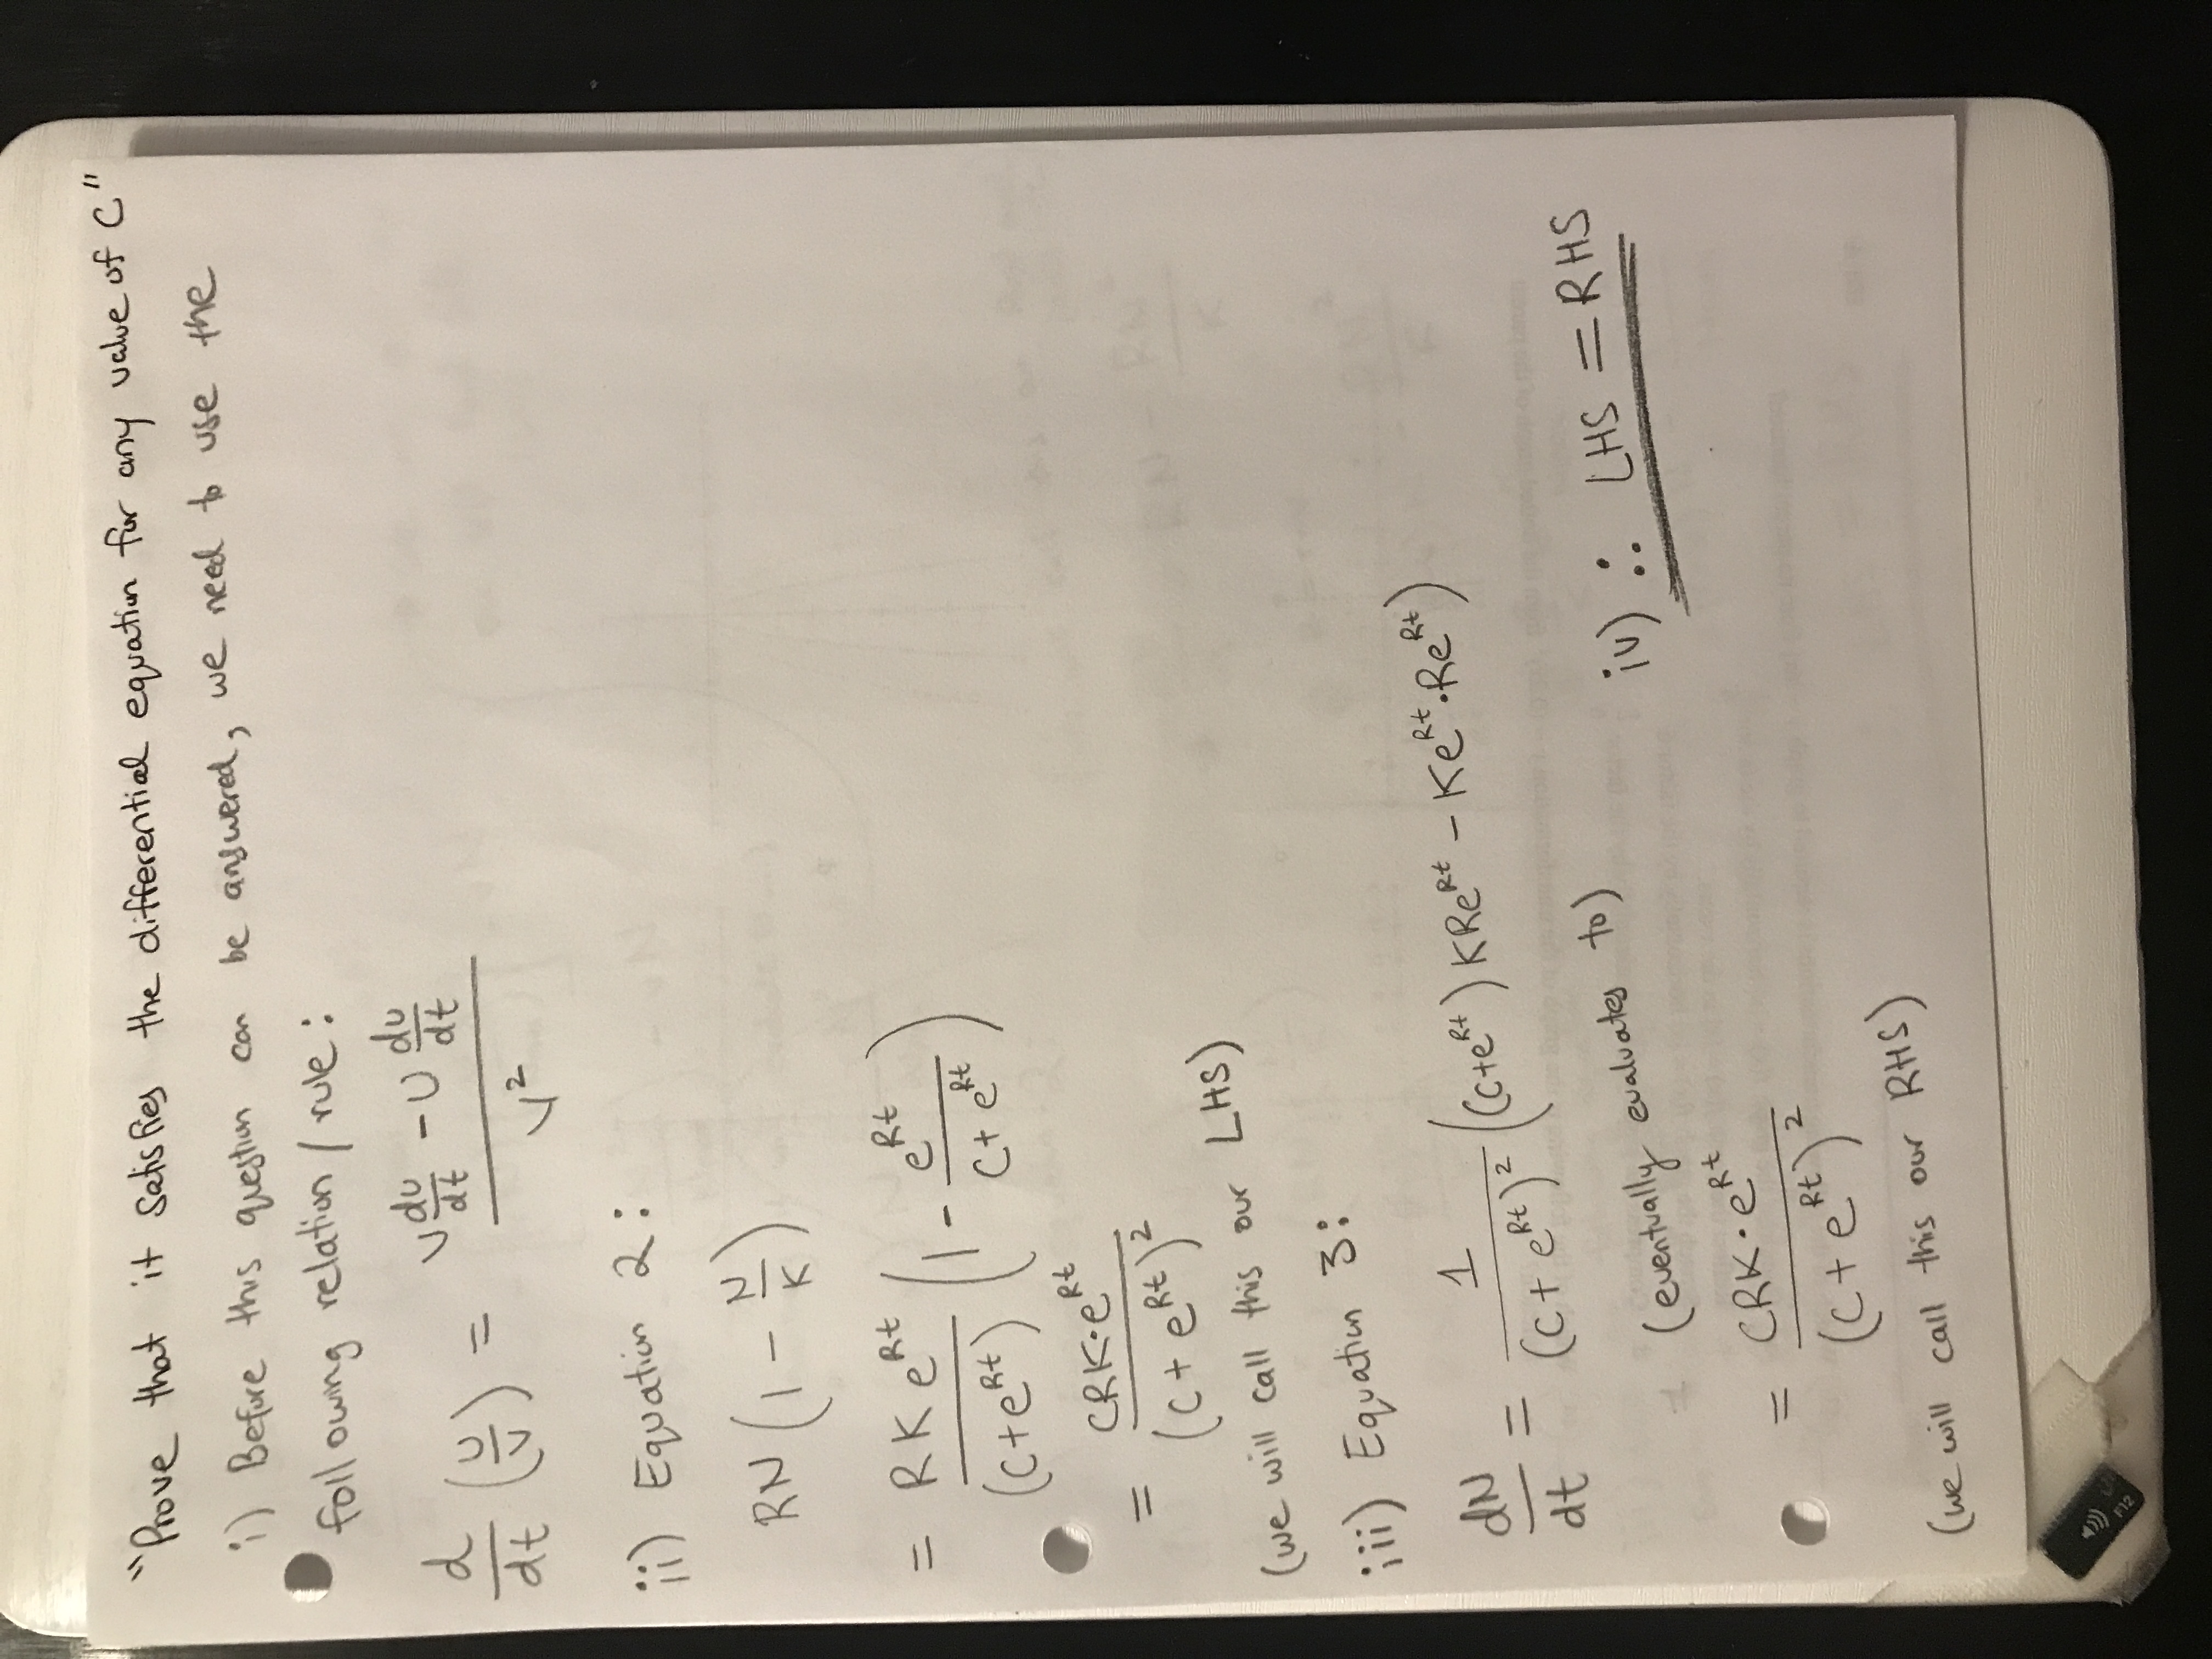 "Prove that it satisfies the differential equation for any value of C"
i) Before this question can be answered, we need to use the
following relation / rule:
d/dt (U/V) = (V du/dt - U du/dt) / V²
ii) Equation 2:
RN (1 - N/K)
= RKe^Rt / (C+e^Rt) (1 - e^Rt / (C+e^Rt))
= CRK·e^Rt / (C+e^Rt)²
(we will call this our LHS)
iii) Equation 3:
dN/dt = 1 / (C+e^Rt)² ((C+e^Rt) KRe^Rt - Ke^Rt·Re^Rt)
(eventually evaluates to)
iv) ∴ LHS = RHS
= CRK·e^Rt / (C+e^Rt)²
(we will call this our RHS)
F12